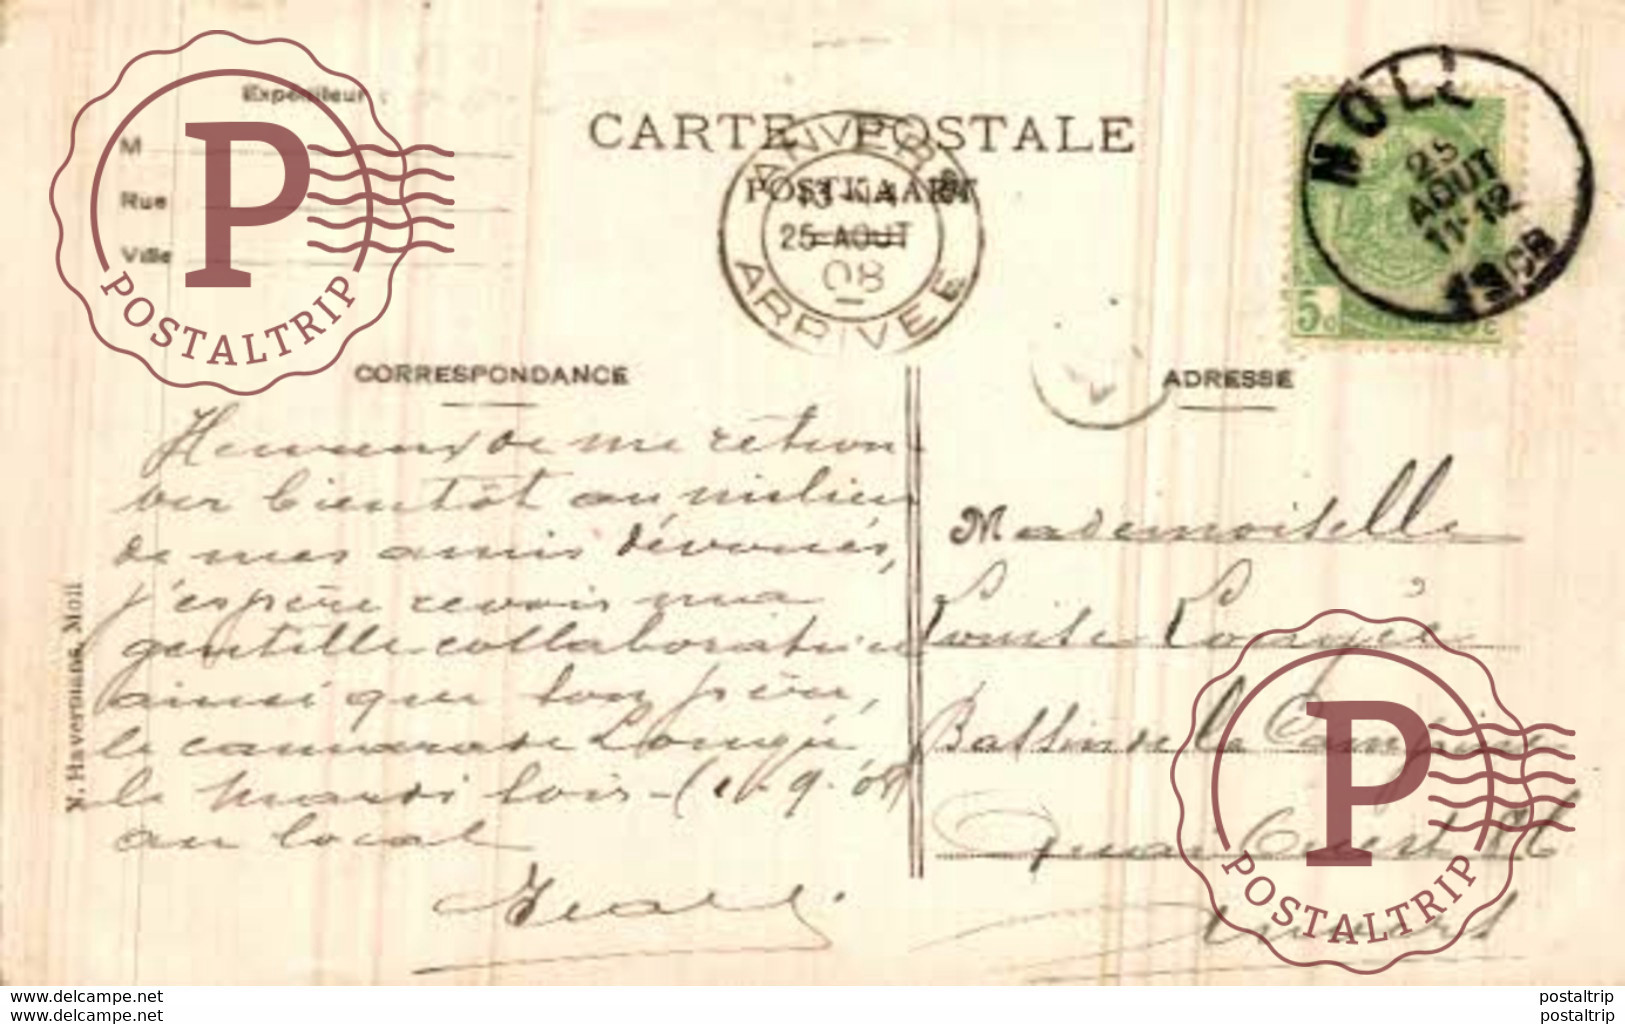 Expéditeur :
M
Rue
Ville
CARTE POSTALE
POSTKAART
ANVERS
25 AOUT
08
ARRIVEE
MOLL
25
AOUT
11-12
1908
5c 5c
CORRESPONDANCE
ADRESSE
Heureux de me retrou
ver bientôt au milieu
de mes amis dévoués,
j'espère revoir ma
gentille collaboratrice
ainsi que son père,
le camarade Longée
le mardi soir - (1-9-08)
au local
Mademoiselle
Louise Longée
Bassin de la Campine
Quai Ouest
Anvers
N. Havermans, Moll
P
POSTALTRIP
P
POSTALTRIP
www.delcampe.net
www.delcampe.net
postaltrip
postaltrip